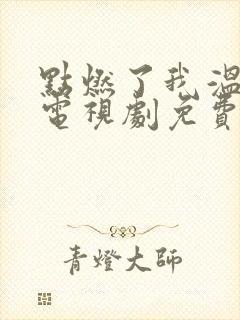 點燃了我溫
電視劇免費
青燈大師